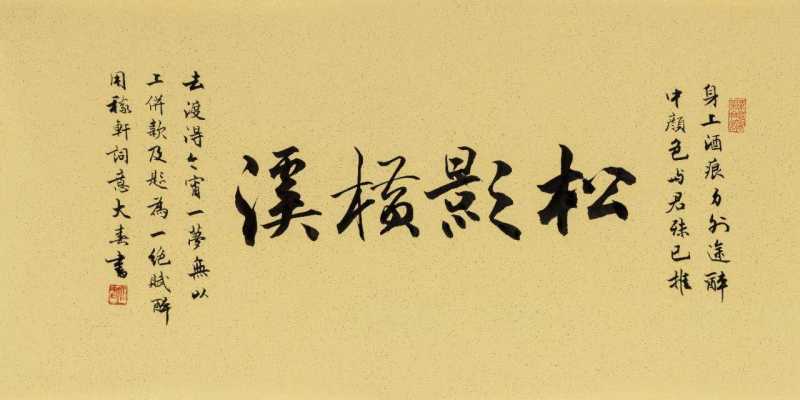 身上酒痕多外途醉
中顏色与君殊已推
松影橫溪
去渡得今宵一夢無以
上併款及題為一絕賦醉
用稼軒詞意大春書